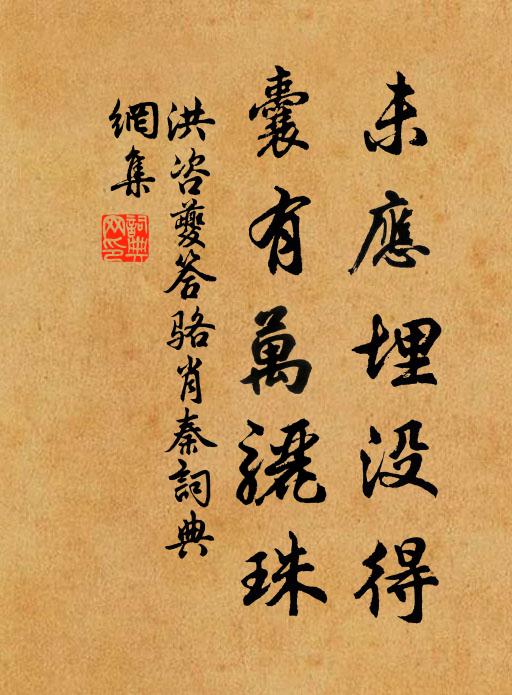 未應埋没得
囊有萬驪珠
洪咨夔答骆肖秦詞典
網集
詞典網印